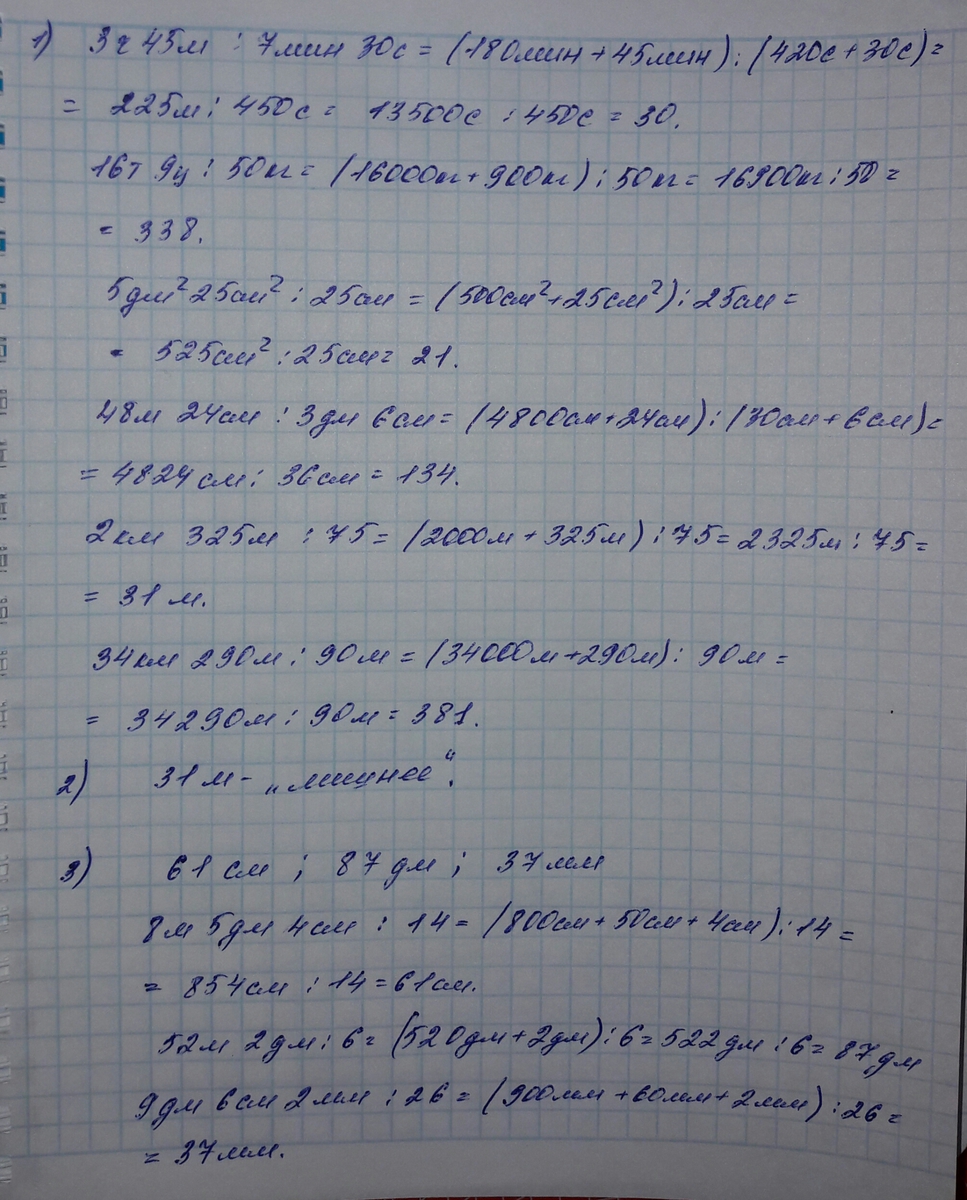 1) 3ч 45м : 7мин 30с = (180мин + 45мин) : (420с + 30с) =
= 225м : 450с = 13500с : 450с = 30.
16т 9ц : 50кг = (16000кг + 900кг) : 50кг = 16900кг : 50 =
= 338.
5дм² 25см² : 25см = (500см² + 25см²) : 25см =
= 525см² : 25см = 21.
48м 24см : 3дм 6см = (4800см + 24см) : (30см + 6см) =
= 4824см : 36см = 134.
2км 325м : 75 = (2000м + 325м) : 75 = 2325м : 75 =
= 31 м.
34км 290м : 90м = (34000м + 290м) : 90м =
= 34290м : 90м = 381.
2) 31м - „лишнее“.
3) 61 см ; 87 дм ; 37 мм
8м 5дм 4см : 14 = (800см + 50см + 4см) : 14 =
= 854см : 14 = 61см.
52м 2дм : 6 = (520дм + 2дм) : 6 = 522дм : 6 = 87дм
9дм 6см 2мм : 26 = (900мм + 60мм + 2мм) : 26 =
= 37мм.